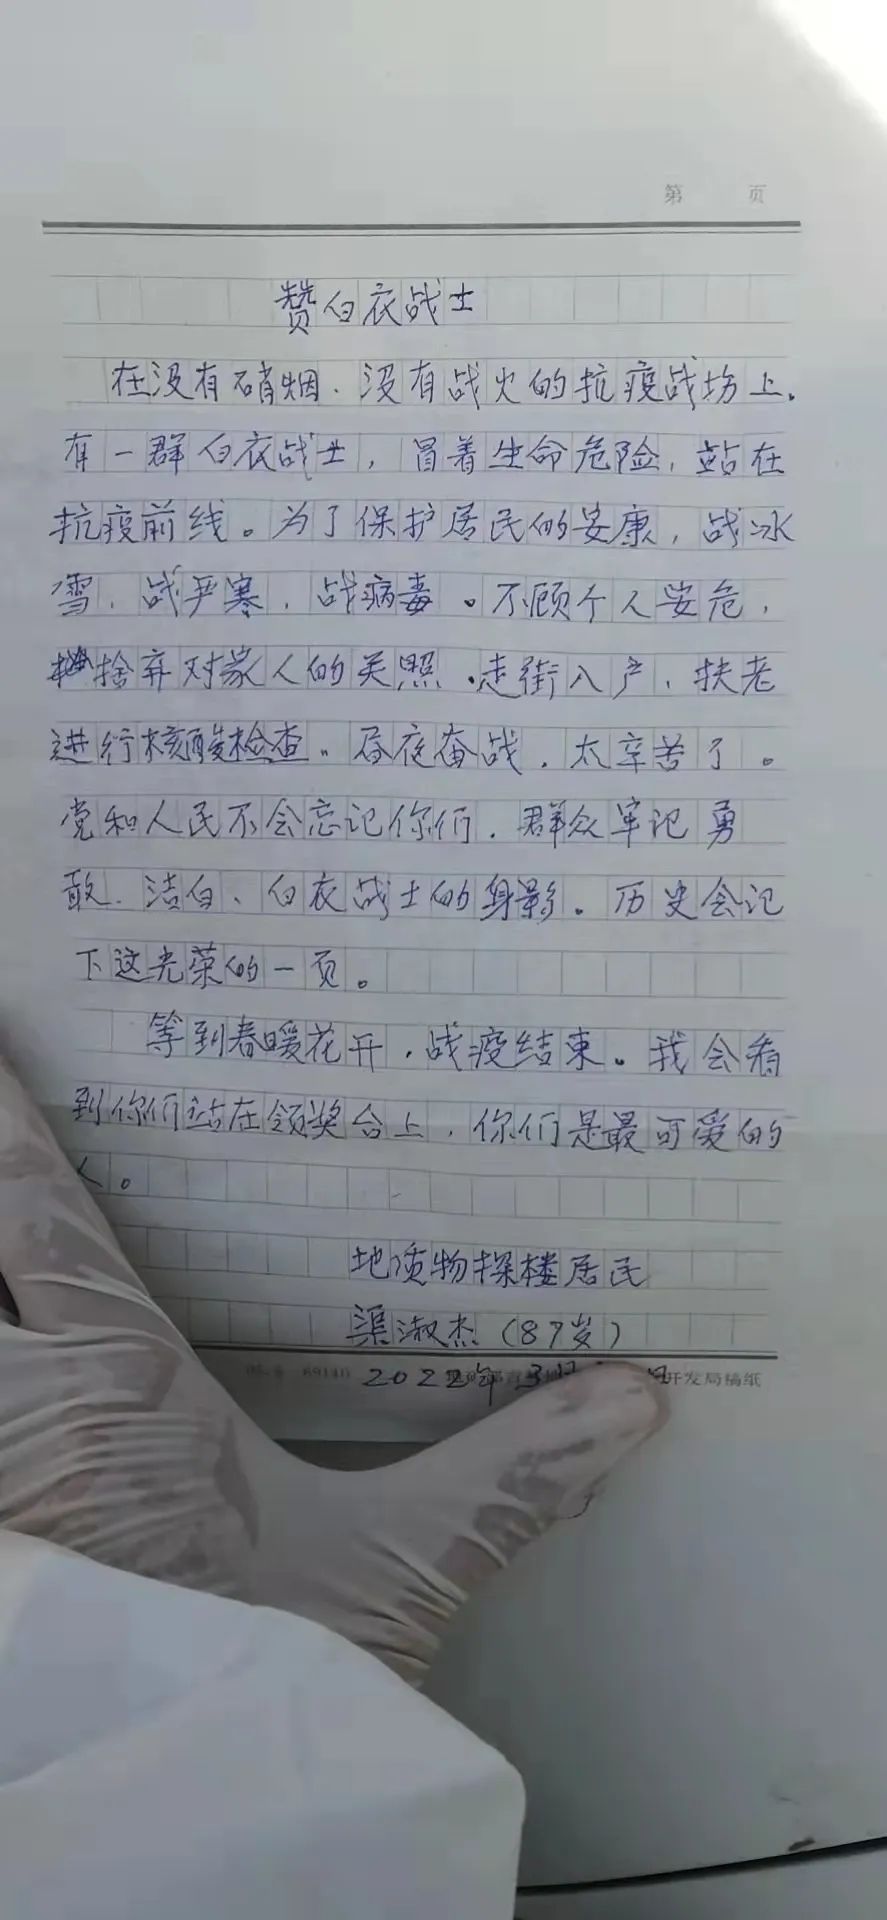 第 页
赞白衣战士
在没有硝烟、没有战火的抗疫战场上，
有一群白衣战士，冒着生命危险，站在
抗疫前线。为了保护居民的安康，战冰
雪，战严寒，战病毒。不顾个人安危，
捨弃对家人的关照，走街入户，扶老
进行核酸检查。昼夜奋战，太辛苦了。
党和人民不会忘记你们，群众牢记勇
敢、洁白、白衣战士的身影。历史会记
下这光荣的一页。
等到春暖花开，战疫结束。我会看
到你们站在领奖台上，你们是最可爱的
人。
地质物探楼居民
渠淑杰（87岁）
2022年3月 日
开发局稿纸